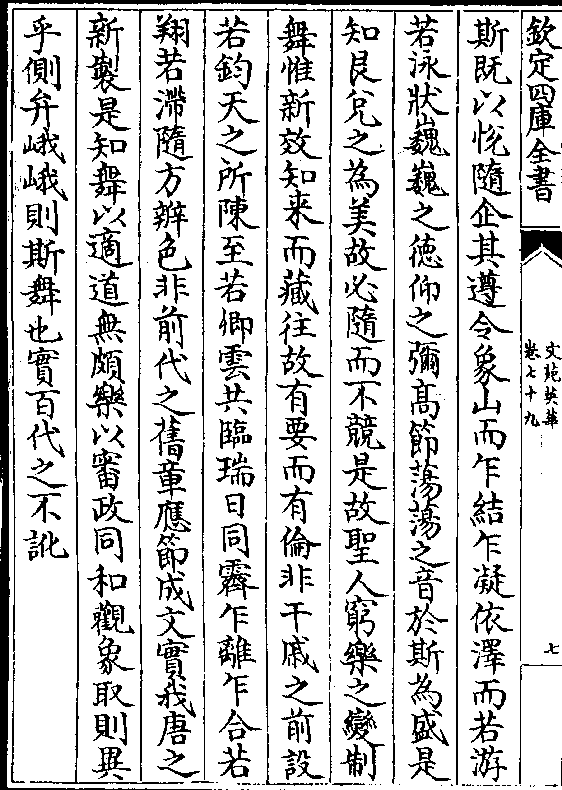 欽定四庫全書
文苑英華
卷七十九
七
斯既以恱隨企其遵令象山而乍結乍凝依澤而若游
若泳狀巍巍之徳仰之彌髙節蕩蕩之音於斯為盛是
知艮兌之為美故必隨而不競是故聖人窮樂之變制
舞惟新效知来而藏往故有要而有倫非干戚之前設
若鈞天之所陳至若卿雲共臨瑞日同霽乍離乍合若
翔若滯隨方辨色非前代之舊章應節成文實我唐之
新製是知舞以適道無頗樂以審政同和觀象取則異
乎側弁峨峨則斯舞也實百代之不訛